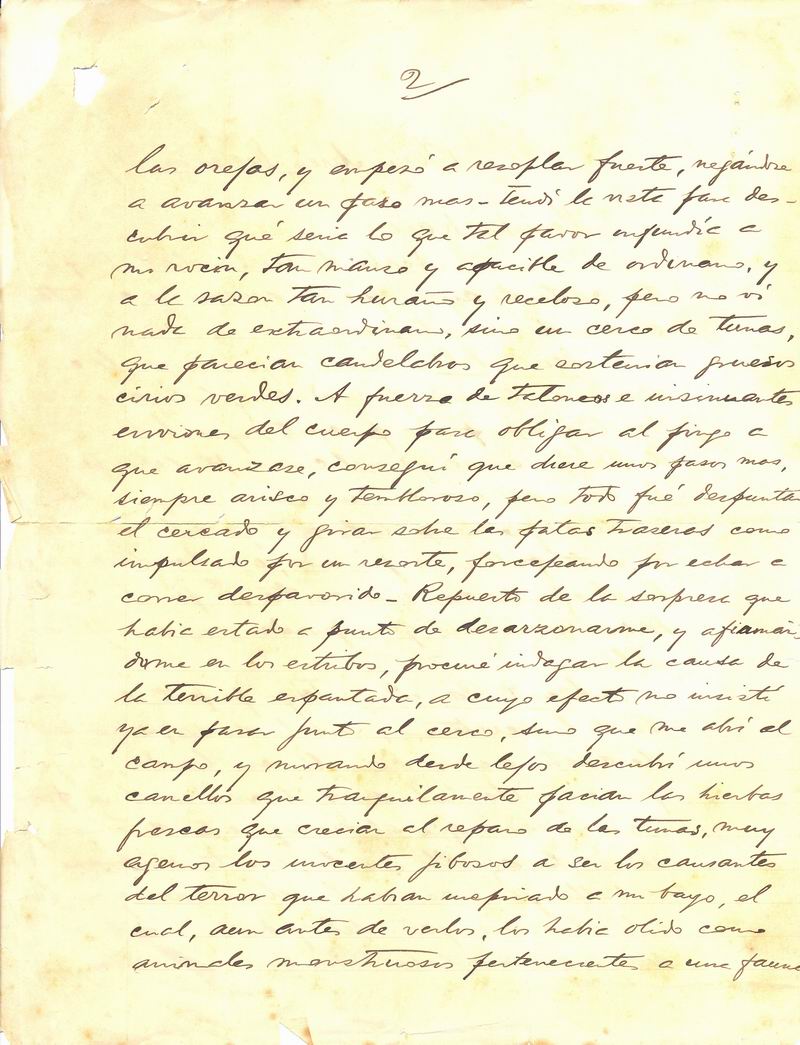 2
las orejas, y empezó a resoplar fuerte, negándose
a avanzar un paso mas - Tendí la vista para des-
cubrir qué seria lo que tal pavor infundía a
mi rocin, tan manso y apacible de ordinario, y
a la sazon tan huraño y receloso, pero no ví
nada de extraordinario, sino un cerco de tunas,
que parecian candelabros que sostenian gruesos
cirios verdes. A fuerza de talones e insinuantes
enviones del cuerpo para obligar al pingo a
que avanzase, conseguí que diere unos pasos mas,
siempre arisco y tembloroso, pero todo fué despuntar
el cercado y girar sobre las patas traseras como
impulsado por un resorte, forcejeando por echar a
correr despavorido - Repuesto de la sorpresa que
habia estado a punto de desarzonarme, y afianzán-
dome en los estribos, procuré indagar la causa de
la terrible espantada, a cuyo efecto no insistí
ya en pasar junto al cerco, sino que me abrí al
campo, y mirando desde lejos descubrí unos
camellos que tranquilamente pacian las hierbas
frescas que crecian al reparo de las tunas, muy
agenos los inocentes jibosos a ser los causantes
del terror que habian inspirado a mi bayo, el
cual, aun antes de verlos, los habia olido como
animales monstruosos pertenecientes a una fauna